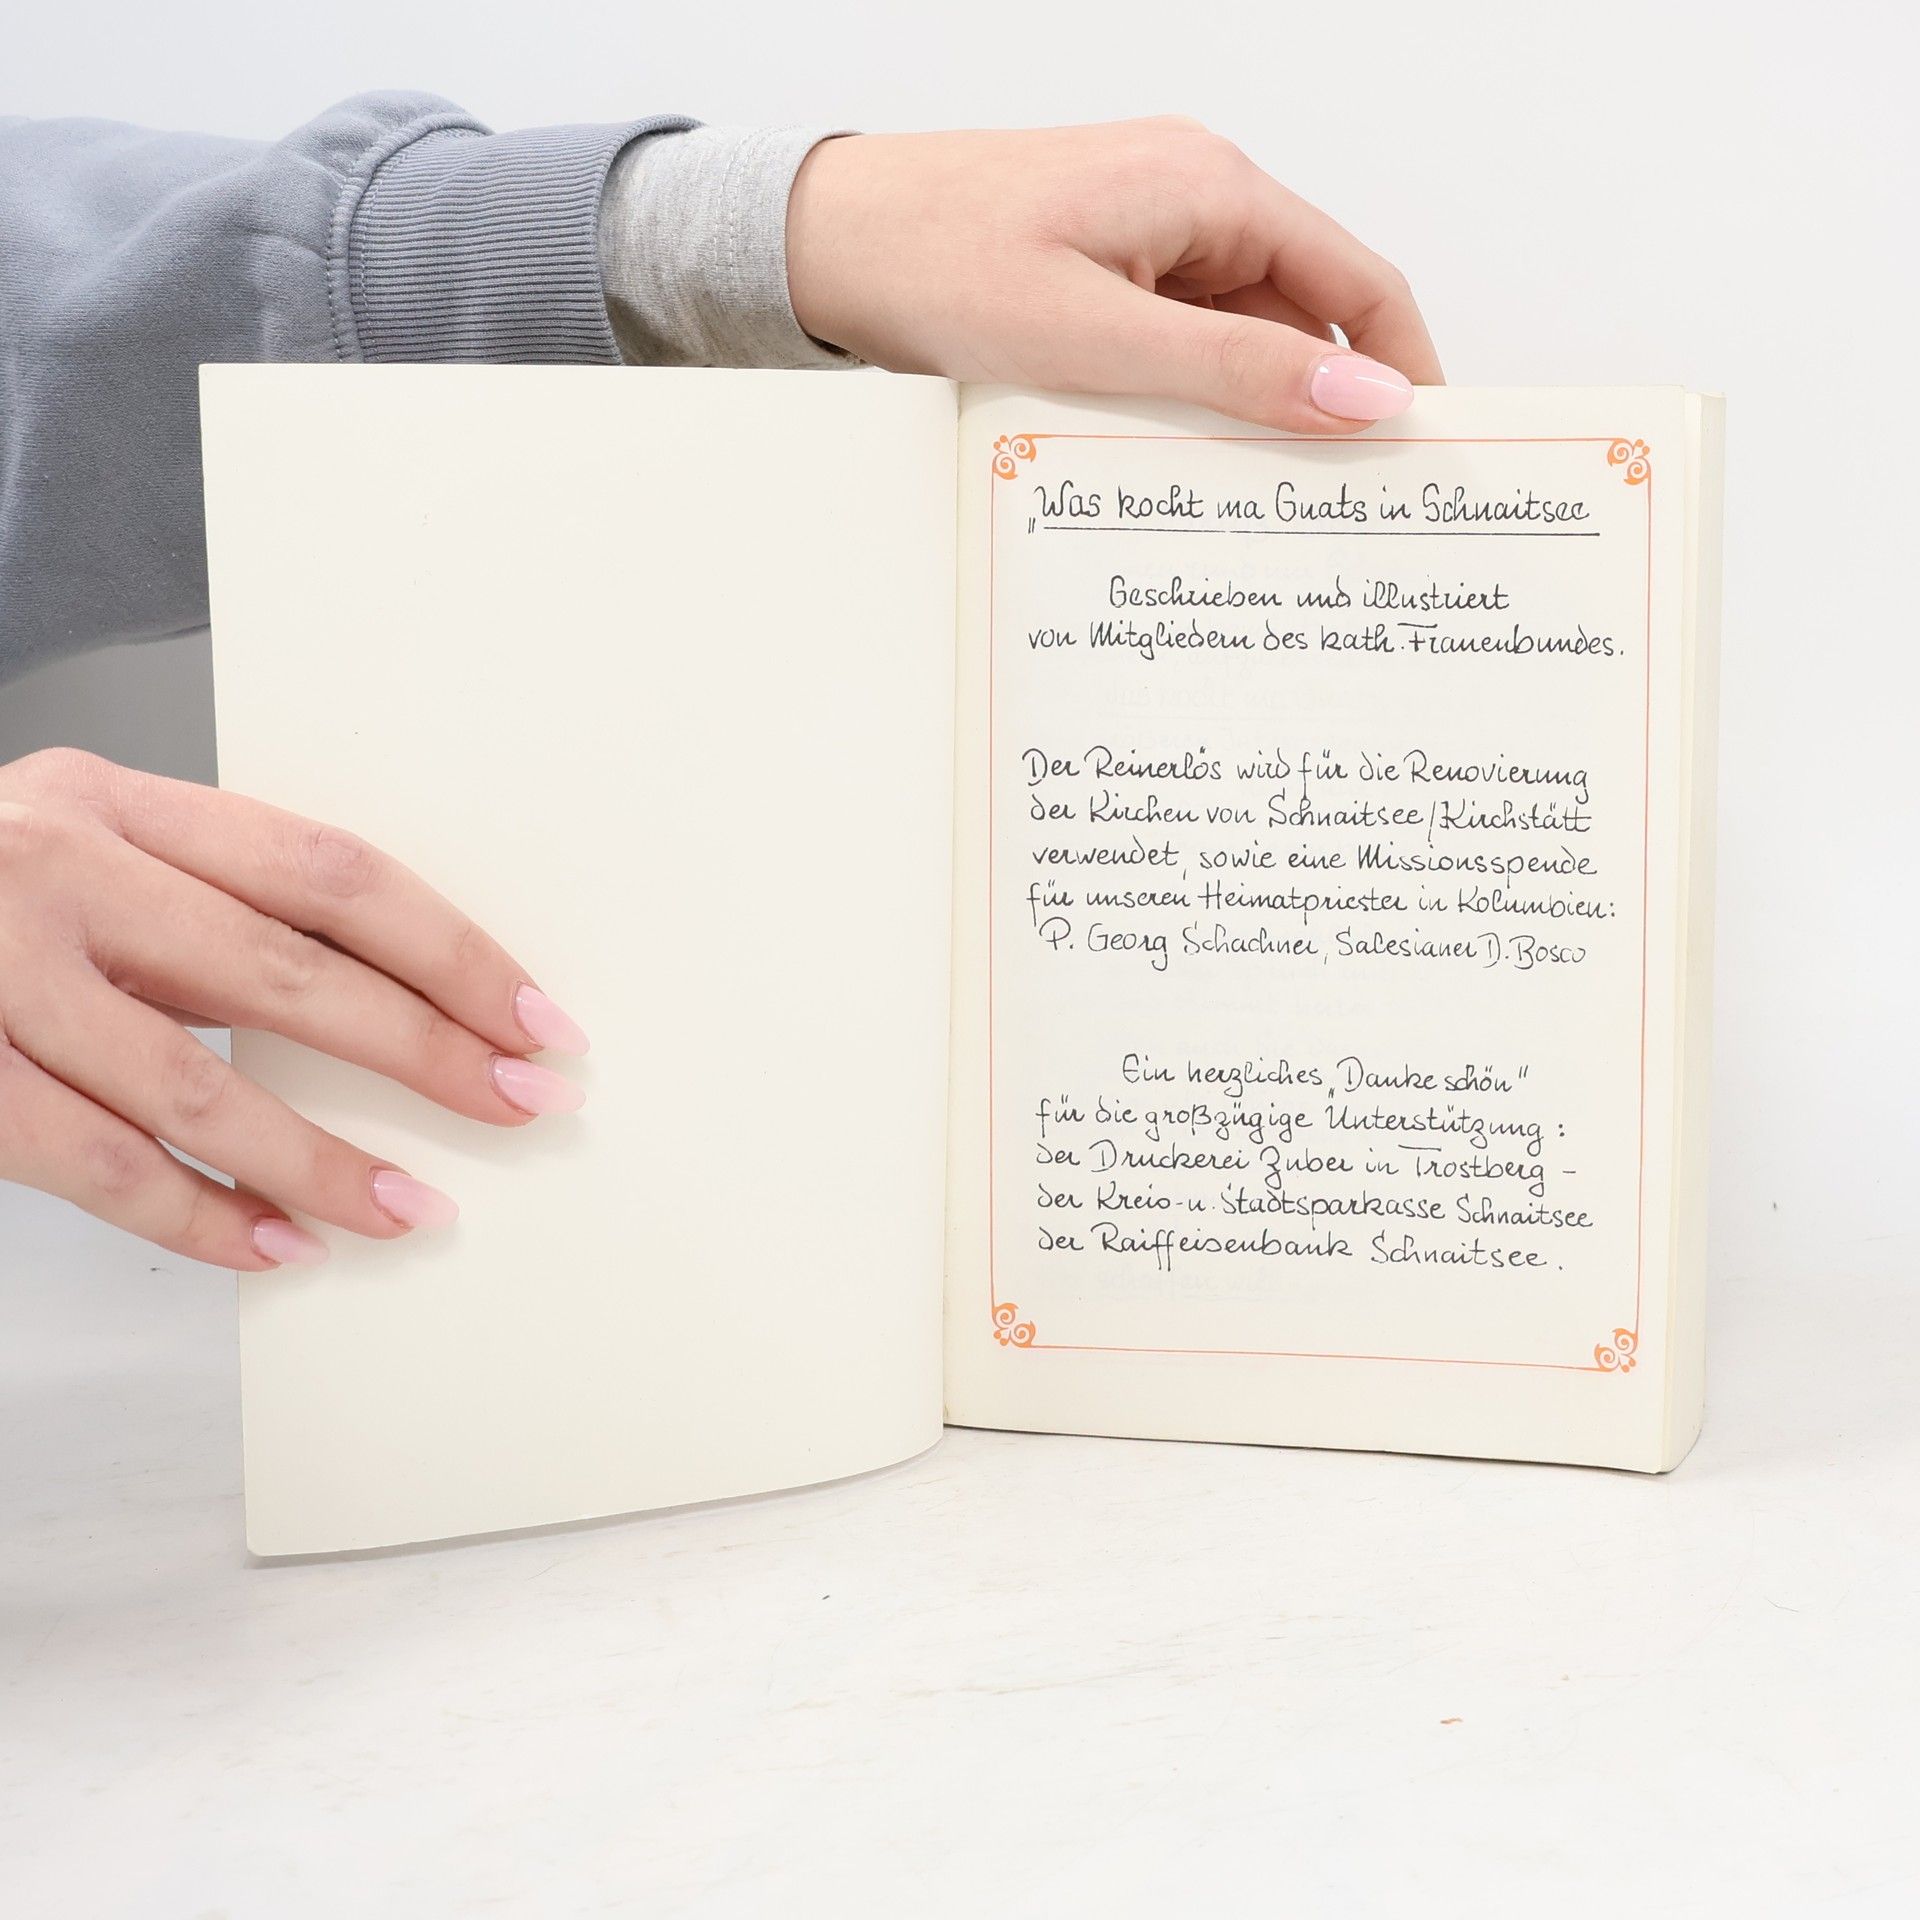 „Was kocht ma Guats in Schnaitsee
Geschrieben und illustriert
von Mitgliedern des kath. Frauenbundes.
Der Reinerlös wird für die Renovierung
der Kirchen von Schnaitsee/Kirchstätt
verwendet, sowie eine Missionsspende
für unseren Heimatpriester in Kolumbien:
P. Georg Schachner, Salesianer D. Bosco
Ein herzliches „Danke schön"
für die großzügige Unterstützung:
der Druckerei Zuber in Trostberg -
der Kreis- u. Stadtsparkasse Schnaitsee
der Raiffeisenbank Schnaitsee.